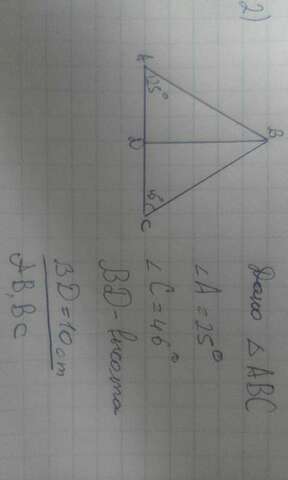 2)
B
A 25° D 46° C
Дано △ ABC
∠A = 25°
∠C = 46°
BD - висота
BD = 10 cm
AB, BC